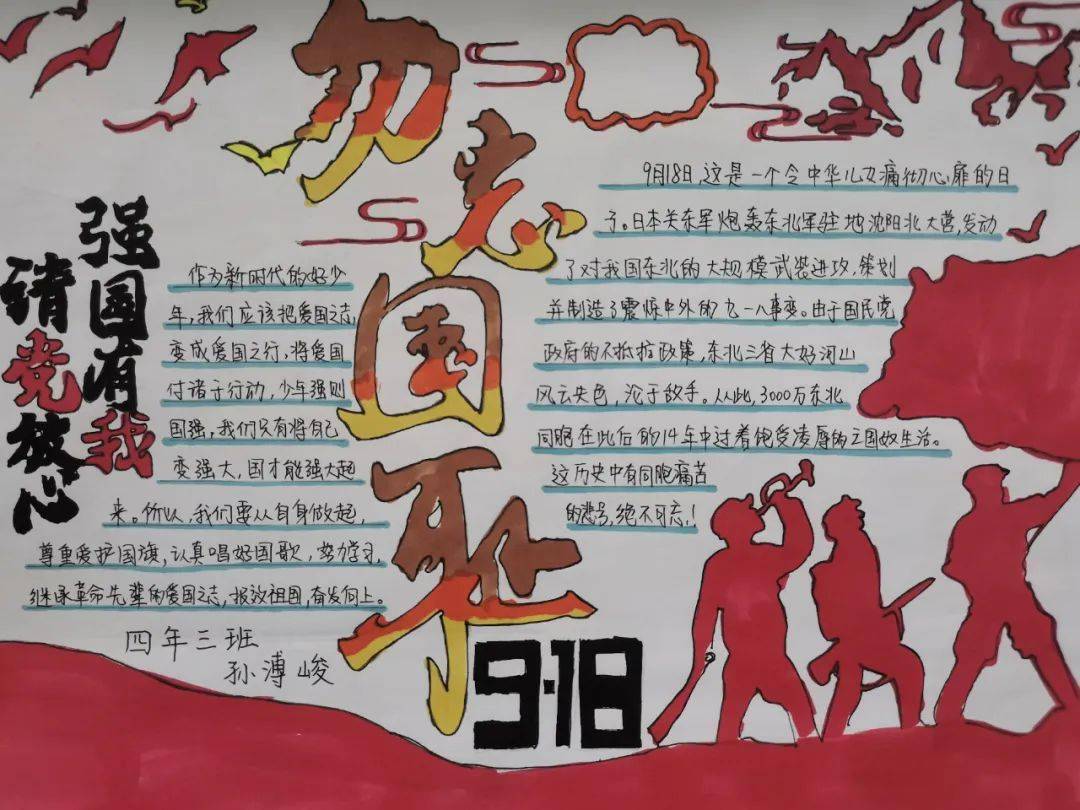 勿忘国耻
请党放心
强国有我
作为新时代的好少
年,我们应该把爱国之志,
变成爱国之行,将爱国
付诸于行动,少年强则
国强,我们只有将自己
变强大,国才能强大起
来。所以,我们要从自身做起,
尊重爱护国旗,认真唱好国歌,努力学习,
继承革命先辈的爱国之志,报效祖国,奋发向上。
四年三班
孙溥峻
9月18日,这是一个令中华儿女痛彻心扉的日
子。日本关东军炮轰东北军驻地沈阳北大营,发动
了对我国东北的大规模武装进攻,策划
并制造了震惊中外的九一八事变。由于国民党
政府的不抵抗政策,东北三省大好河山
风云失色,沦于敌手。从此,3000万东北
同胞在此后的14年中过着饱受凌辱的亡国奴生活。
这历史中有同胞痛苦
的悲号,绝不可忘!
9·18